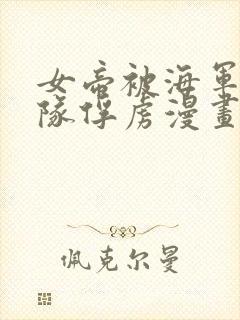 女帝被海軍
隊俘虜漫畫
佩克尔曼